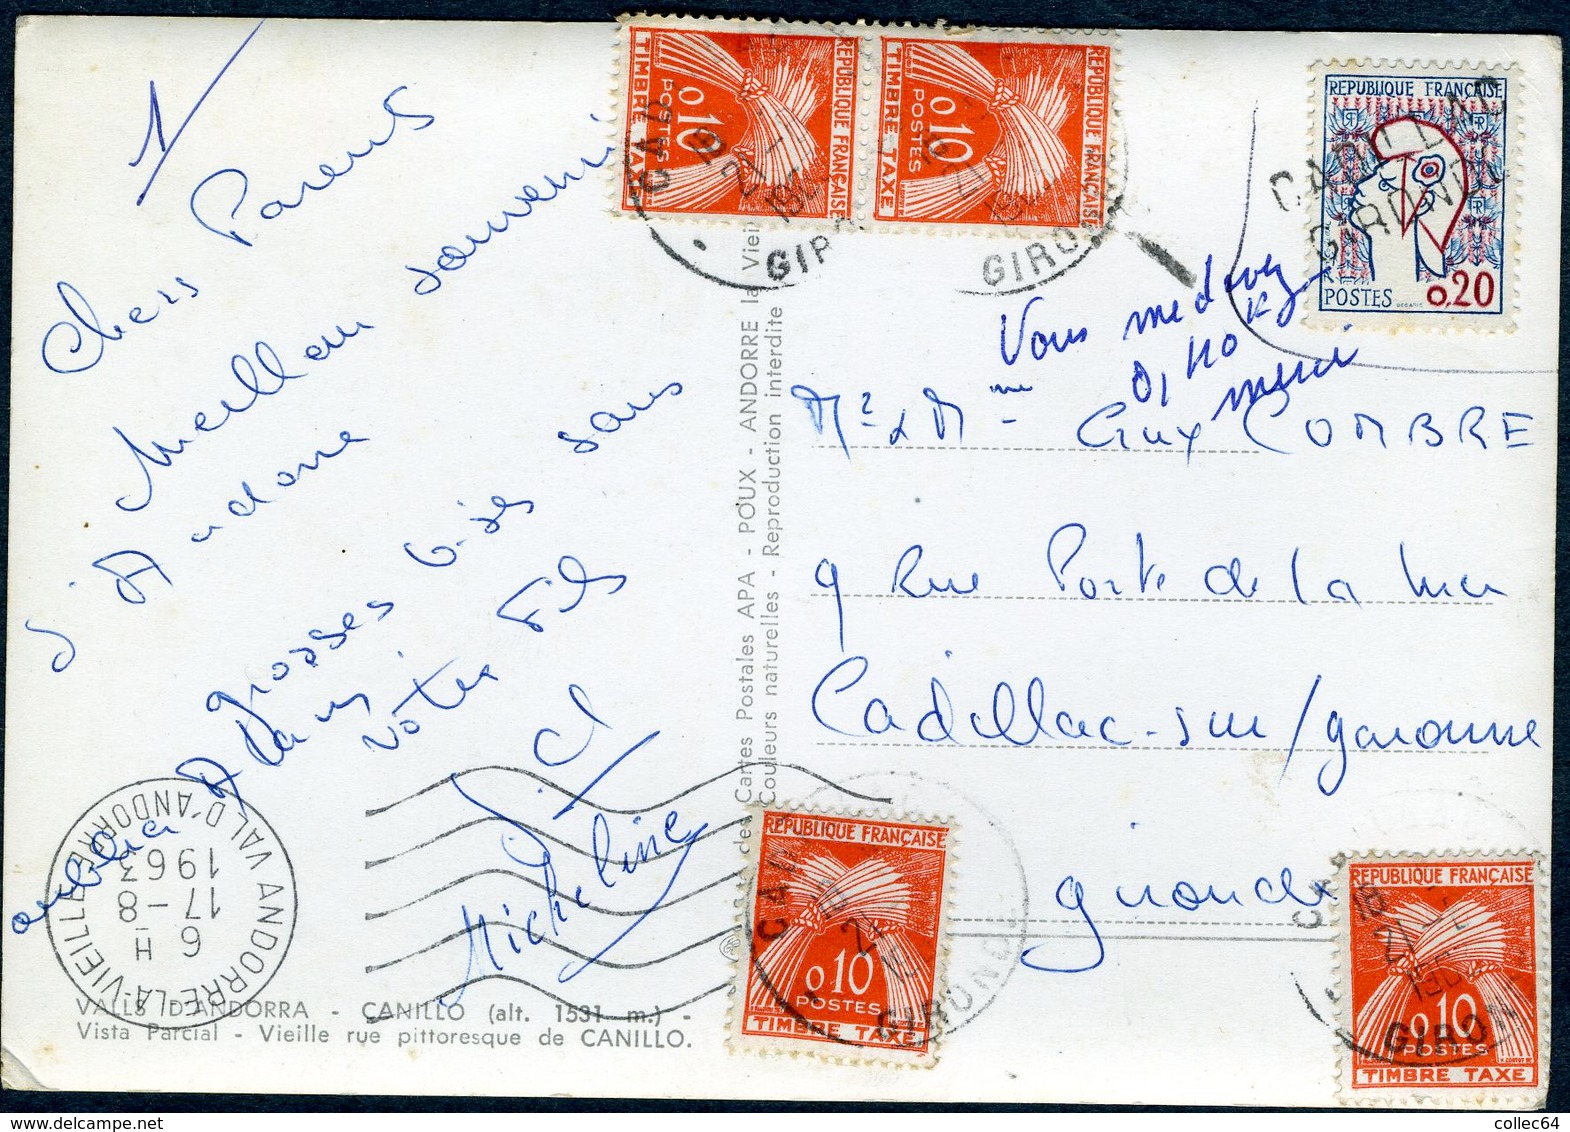 1
Chers Parents
Meilleur souvenir
d'Andorre
grosses bises sans
oublier
votre Fils
Micheline
VALLS D'ANDORRA - CANILLO (alt. 1531 m.) -
Vista Parcial - Vieille rue pittoresque de CANILLO.
ANDORRE-LA-VIEILLE
VAL D'ANDORRE
6 H
17-8
1963
Cartes Postales APA - POUX - ANDORRE la Vieille
Couleurs naturelles - Reproduction interdite
REPUBLIQUE FRANÇAISE
0,10
POSTES
TIMBRE TAXE
REPUBLIQUE FRANÇAISE
0,10
POSTES
TIMBRE TAXE
GIRONDE
REPUBLIQUE FRANÇAISE
POSTES
0,20
CADILLAC
GIRONDE
Vous me devez
0,40
merci
Mr & Mme Guy COMBRE
9 Rue Porte de la Mer
Cadillac-sur/garonne
gironde
REPUBLIQUE FRANÇAISE
0,10
POSTES
TIMBRE TAXE
GIRONDE
REPUBLIQUE FRANÇAISE
0,10
POSTES
TIMBRE TAXE
GIRON
collec64